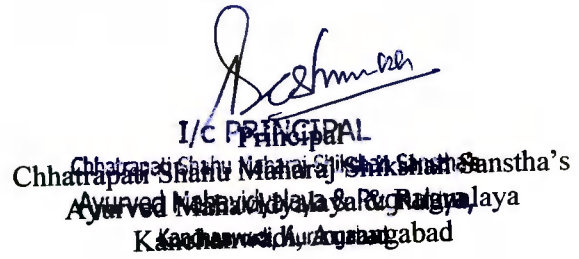 I/c PRINCIPAL
Principal
Chhatrapati Shahu Maharaj Shikshan Sanstha's
Chhatrapati Shahu Maharaj Shikshan Sanstha's
Ayurved Mahavidyalaya & Rugnalaya,
Ayurved Mahavidyalaya & Rugnalaya
Kanchanwadi, Aurangabad
Kanchanwadi, Aurangabad